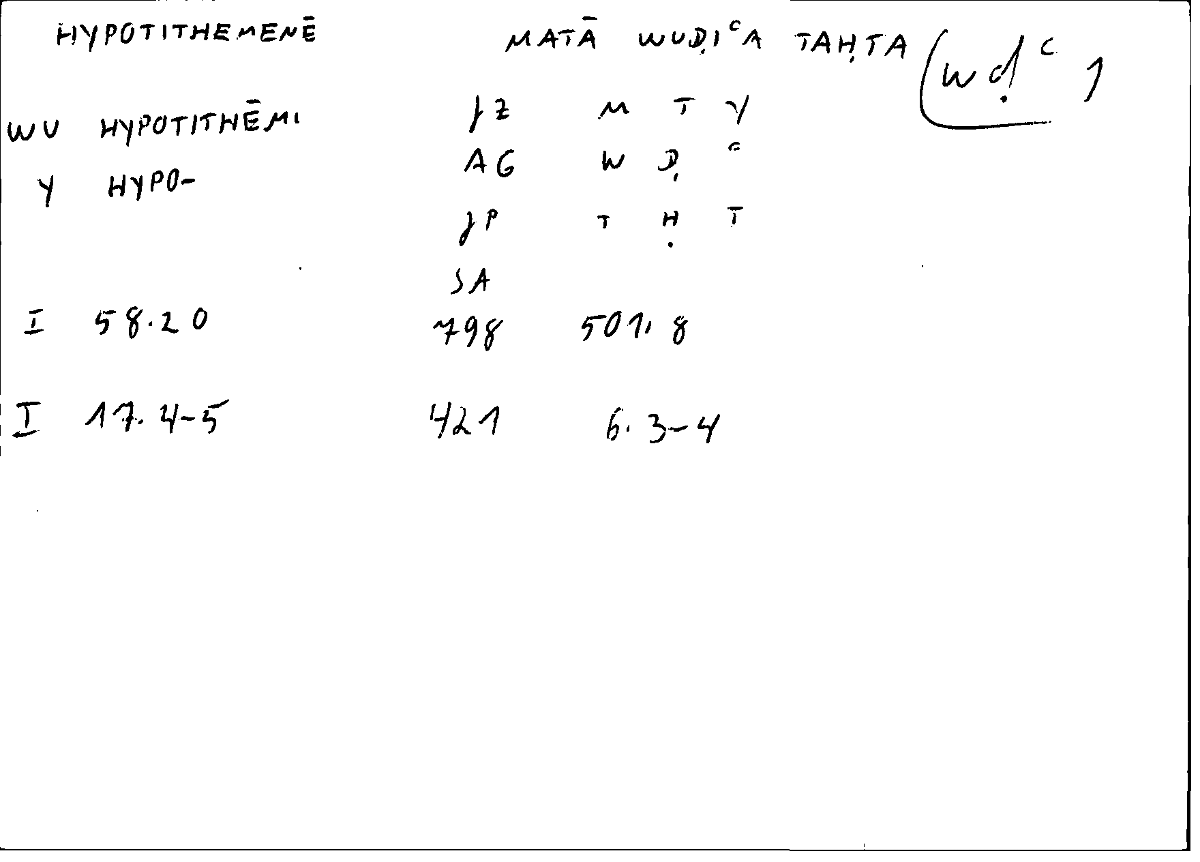 HYPOTITHEMENĒ MATĀ WUḌIʿA TAḤTA (wḍʿ 1
WU HYPOTITHĒMI JZ M T Y
Y HYPO- AG W Ḍ ʿ
JP T Ḥ T
SA
I 58.20 798 501.8
I 17.4-5 421 6.3-4